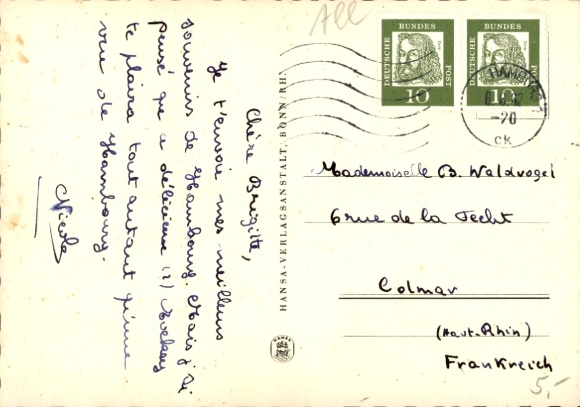 Chère Brigitte,
Je t'envoie mes meilleurs
souvenirs de Hambourg. Mais j'ai
pensé que ce délicieux (?)
te plaira tout autant qu'une
vue de Hambourg.
Nicole
All
DEUTSCHE BUNDESPOST
10
DEUTSCHE BUNDESPOST
10
HAMBURG
-20
ck
HANSA-VERLAGSANSTALT, BONN/RH.
Mademoiselle B. Waldvogel
6 rue de la Fecht
Colmar
(Haut-Rhin)
Frankreich
5,-